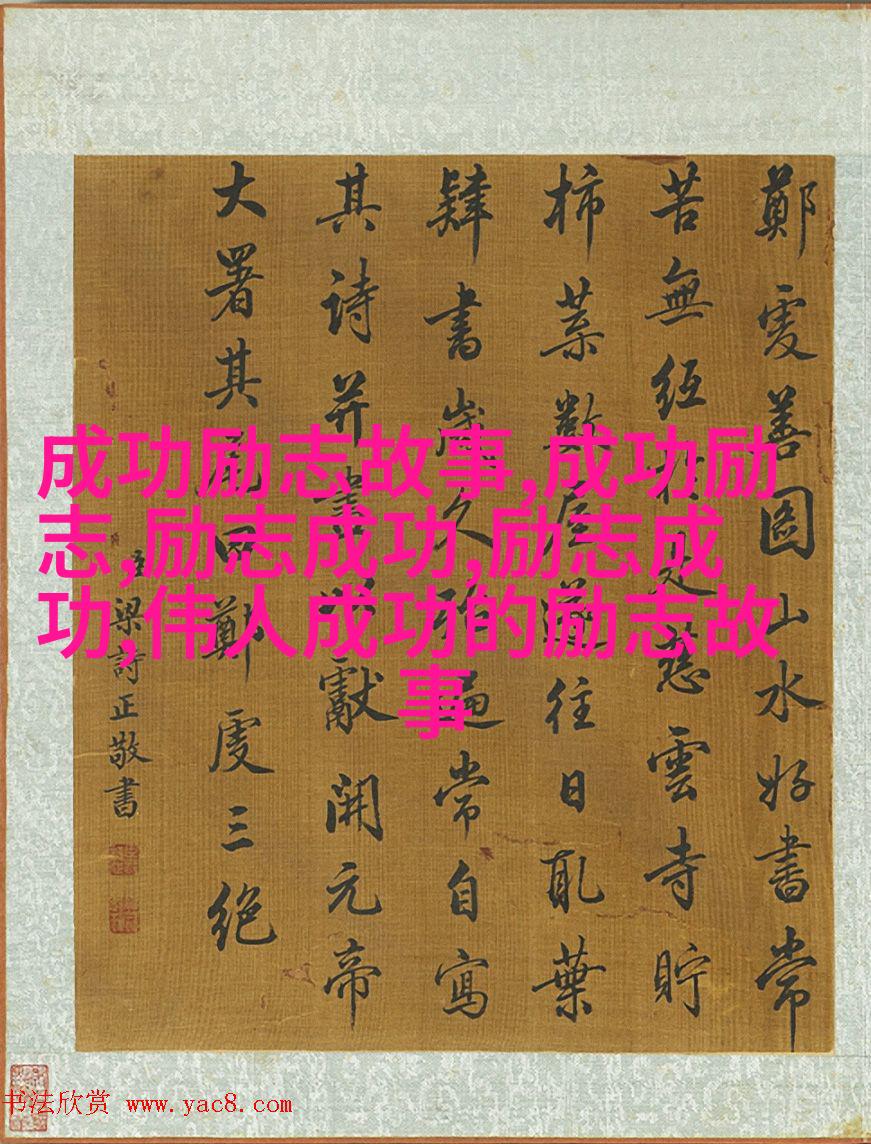 成功励志故事,成功励
志,励志成功,励志成
功,伟人成功的励志故
事
鄭虔善圖山水好書常
苦無紙於是慈雲寺貯
柿葉數屋遂往日取葉
肄書歲久殆遍常自寫
其詩并畫以獻開元帝
大署其尾曰鄭虔三絕
臣梁詩正敬書
书法欣赏 www.yac8.com